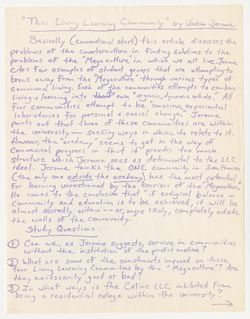 "The Living Learning Community" by Judson Jerome
Basically (conventional start) this article discusses the
problems of the counterculture in finding solutions to the
problems of the Megaculture, in which we all live. Jerome
cites four examples of student groups that are attempting to
break away from the Megaculture through various types of
communal living. Each of the communities attempts to combine
living & learning into "our own organic, dynamic whole." All
four communities attempt to be conscious, experimental
laboratories for personal & social change. Jerome
points out that three of these communities are within
the university — seeking ways in which to relate to it.
However, the academy seems to get in the way of
communal progress in that it provides too much
structure which Jerome sees as detrimental to the LLC
ideal. Jerome thinks the ONE community in San Francisco
(the only one outside the academy) has the most potential
for learning unrestrained by the barriers of the "Megaculture."
He comes to the conclusion that "if enlarged balance in
community and education is to be achieved, it will be
almost secretly within -- or, more likely, completely outside
the walls of the community.
Study Questions:
① Can we, as Jerome suggests, survive in communities
without the institution of the profit motive?
② What are some of the constraints imposed on these
four Living Learning Communities by the "Megaculture"? Are
they necessarily good or bad?
③ In what ways is the Collins LLC inhibited from
being a residential college within the university?